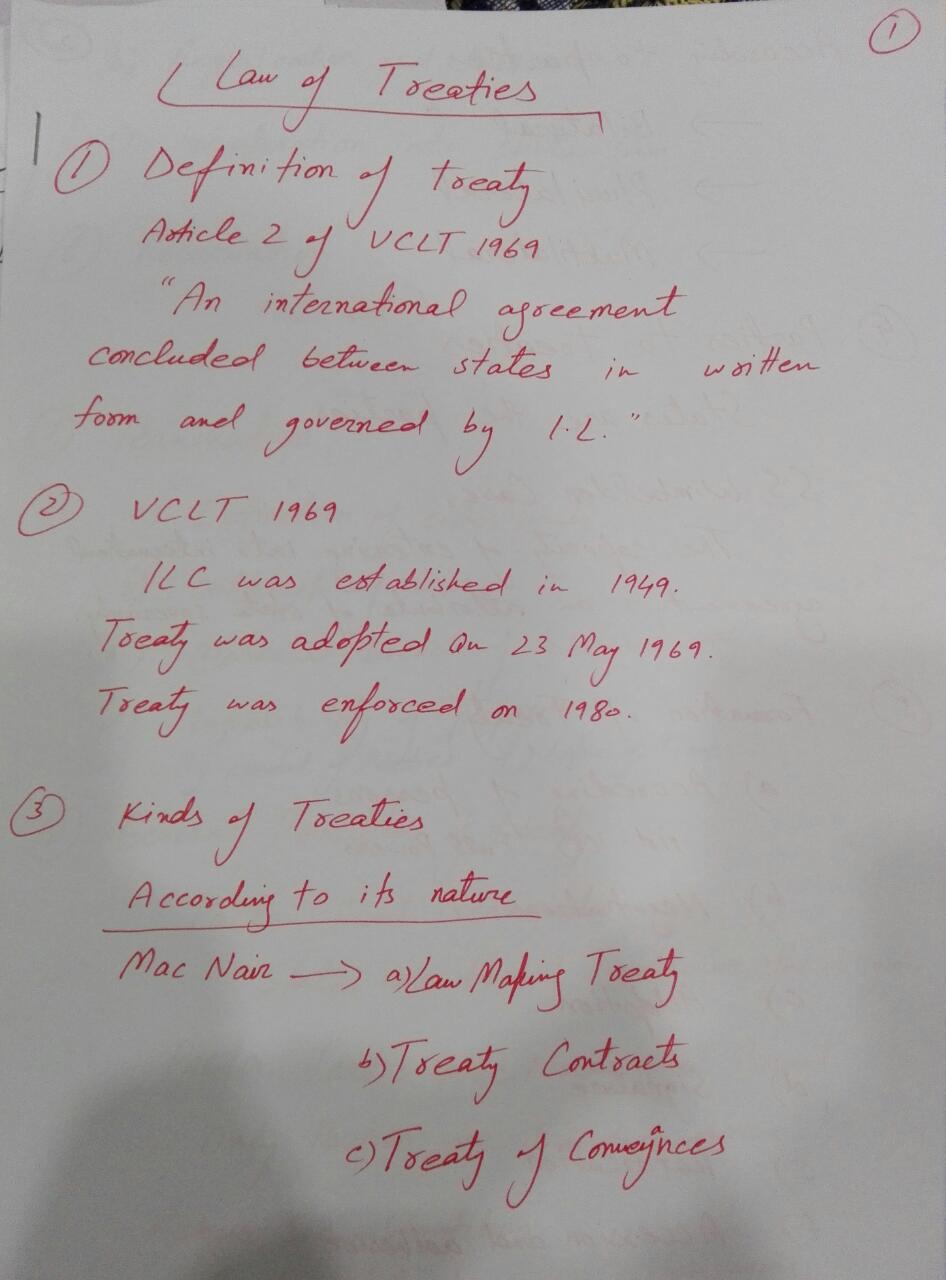 1
Law of Treaties
1 Definition of treaty
Article 2 of VCLT 1969
"An international agreement
concluded between states in written
form and governed by I.L."
2 VCLT 1969
ILC was established in 1949.
Treaty was adopted on 23 May 1969.
Treaty was enforced on 1980.
3 Kinds of Treaties
According to its nature
Mac Nair → a) Law Making Treaty
b) Treaty Contracts
c) Treaty of Conveynces